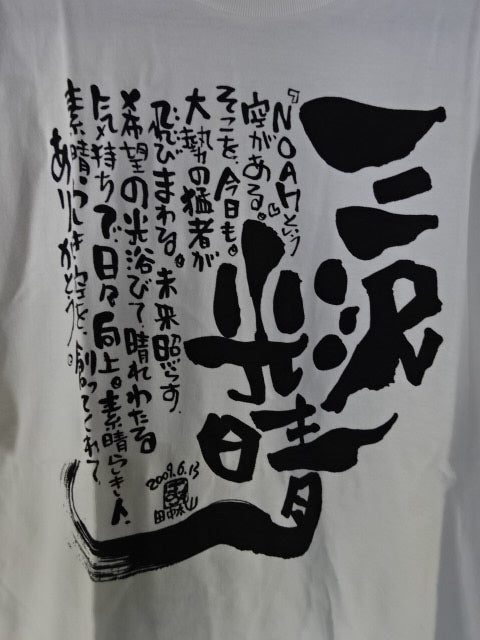 三沢光晴
『NOAHという
空がある。』
そこを、今日も。
大勢の猛者が
飛びまわる。未来照らす。
希望の光浴びて晴れわたる
気持ちで、日々向上。素晴らしき人。
素晴らしき空を、創ってくれて
ありがとう。
2009.6.13